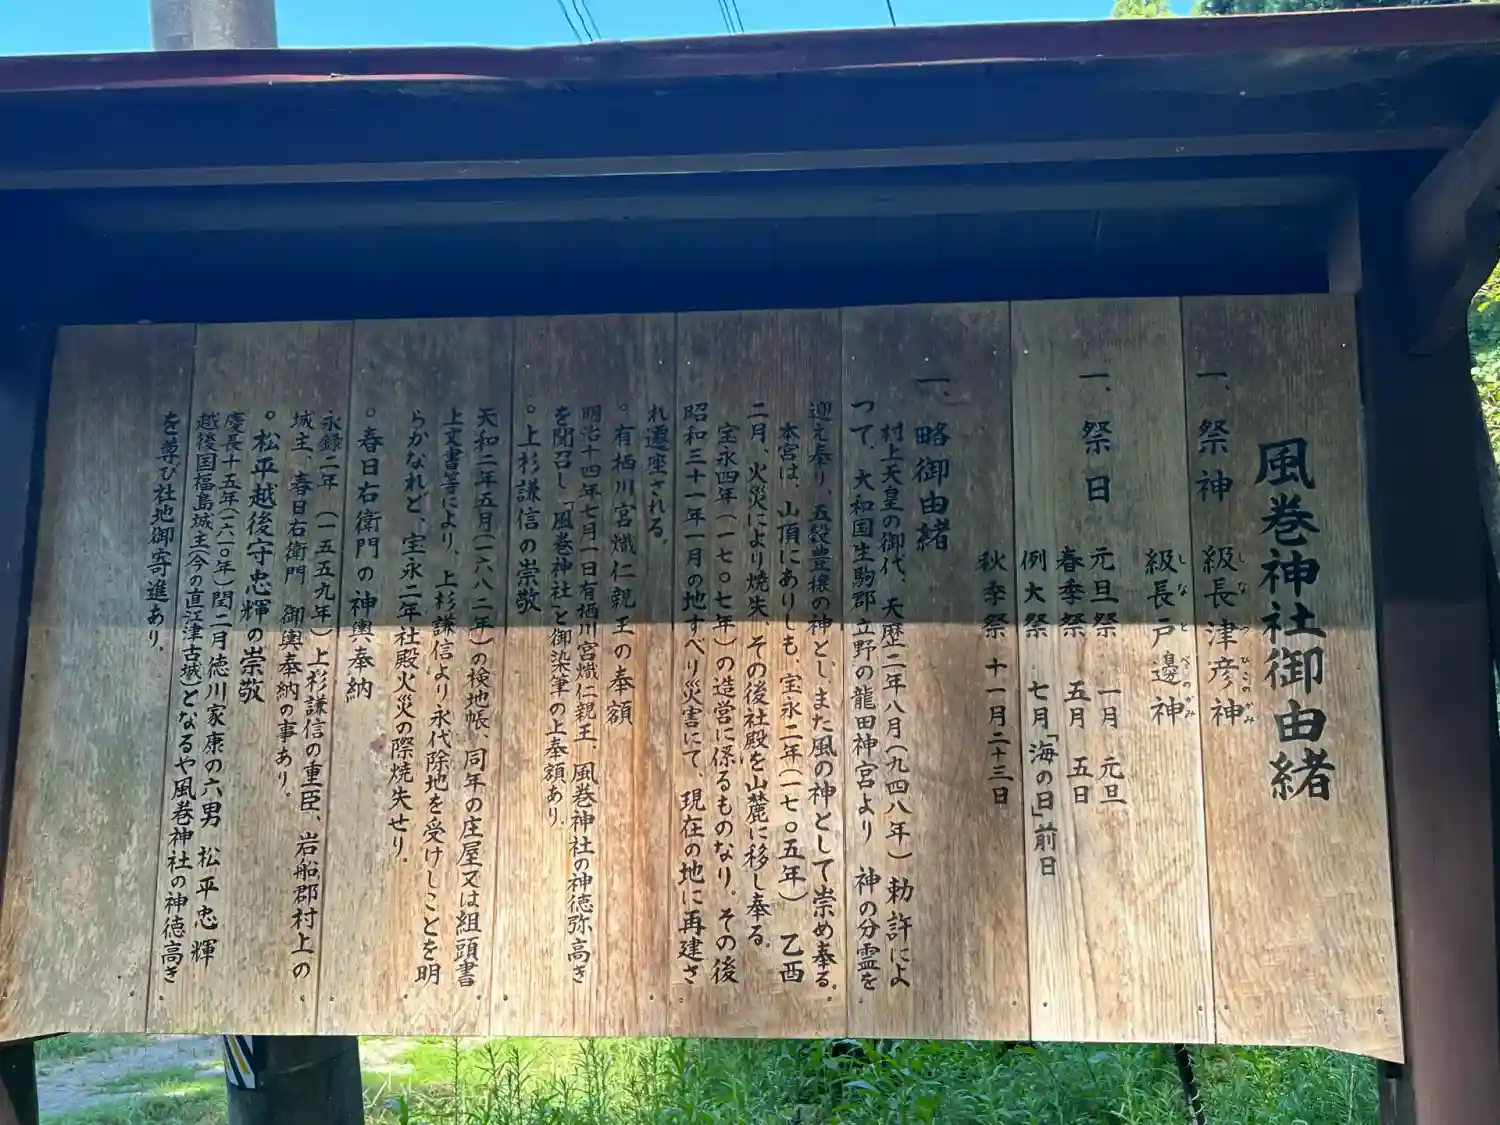 風巻神社御由緒
一、祭神 級長津彦神
しなつひこのかみ
級長戸邊神
しなとべのかみ
一、祭日 元旦祭 一月 元旦
春季祭 五月 五日
例大祭 七月「海の日」前日
秋季祭 十一月二十三日
一、略御由緒
村上天皇の御代、天暦二年八月(九四八年)勅許によ
つて、大和国生駒郡立野の龍田神宮より 神の分霊を
迎え奉り、五穀豊穣の神とし、また風の神として崇め奉る。
本宮は、山頂にありしも、宝永二年(一七〇五年) 乙酉
二月、火災により焼失、その後社殿を山麓に移し奉る。
宝永四年(一七〇七年)の造営に係るものなり。その後
昭和三十一年一月の地すべり災害にて、現在の地に再建さ
れ遷座される。
。有栖川宮熾仁親王の奉額
明治十四年七月一日有栖川宮熾仁親王、風巻神社の神徳弥高き
を聞召し、「風巻神社」と御染筆の上奉額あり。
。上杉謙信の崇敬
天和二年五月(一六八二年)の検地帳、同年の庄屋又は組頭書
上文書等により、上杉謙信より永代除地を受けしことを明
らかなれど、宝永二年社殿火災の際焼失せり。
。春日右衛門の神輿奉納
永録二年 (一五五九年)上杉謙信の重臣、岩船郡村上の
城主 春日右衛門 御輿奉納の事あり。
。松平越後守忠輝の崇敬
慶長十五年(一六一〇年)閏二月徳川家康の六男 松平忠輝
越後国福島城主(今の直江津古城)となるや風巻神社の神徳高き
を尊び社地御寄進あり。